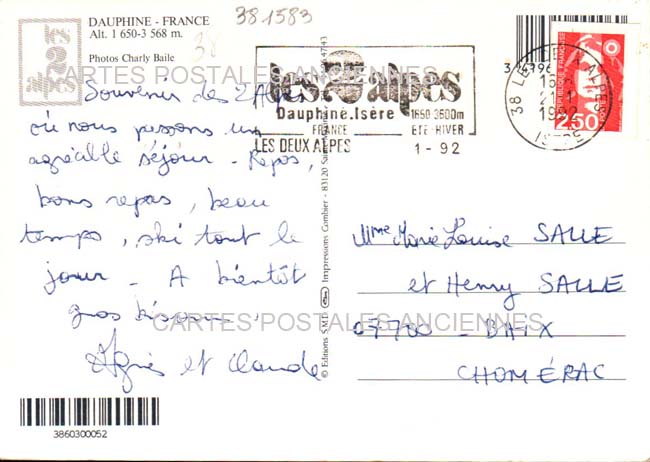 les
2
alpes
DAUPHINE - FRANCE
Alt. 1 650-3 568 m.
Photos Charly Baile
381583
38
CARTES POSTALES ANCIENNES
Souvenir des 2 Alpes
où nous passons un
agréable séjour - Repos,
bons repas, beau
temps, ski tout le
jour - A bientôt
gros bisous.
Agnès et Claude
les 2 alpes
Dauphine.Isère
1650-3600m
FRANCE
ETE-HIVER
LES DEUX ALPES
1 - 92
38 LES DEUX ALPES
21-1
1992
ISERE
REPUBLIQUE FRANÇAISE
2,50
© Editions S.M.D. Impressions Combier - 83120
Mme Marie Louise SALLE
et Henry SALLE
07700 - BAIX
CHOMÉRAC
CARTES POSTALES ANCIENNES
3860300052